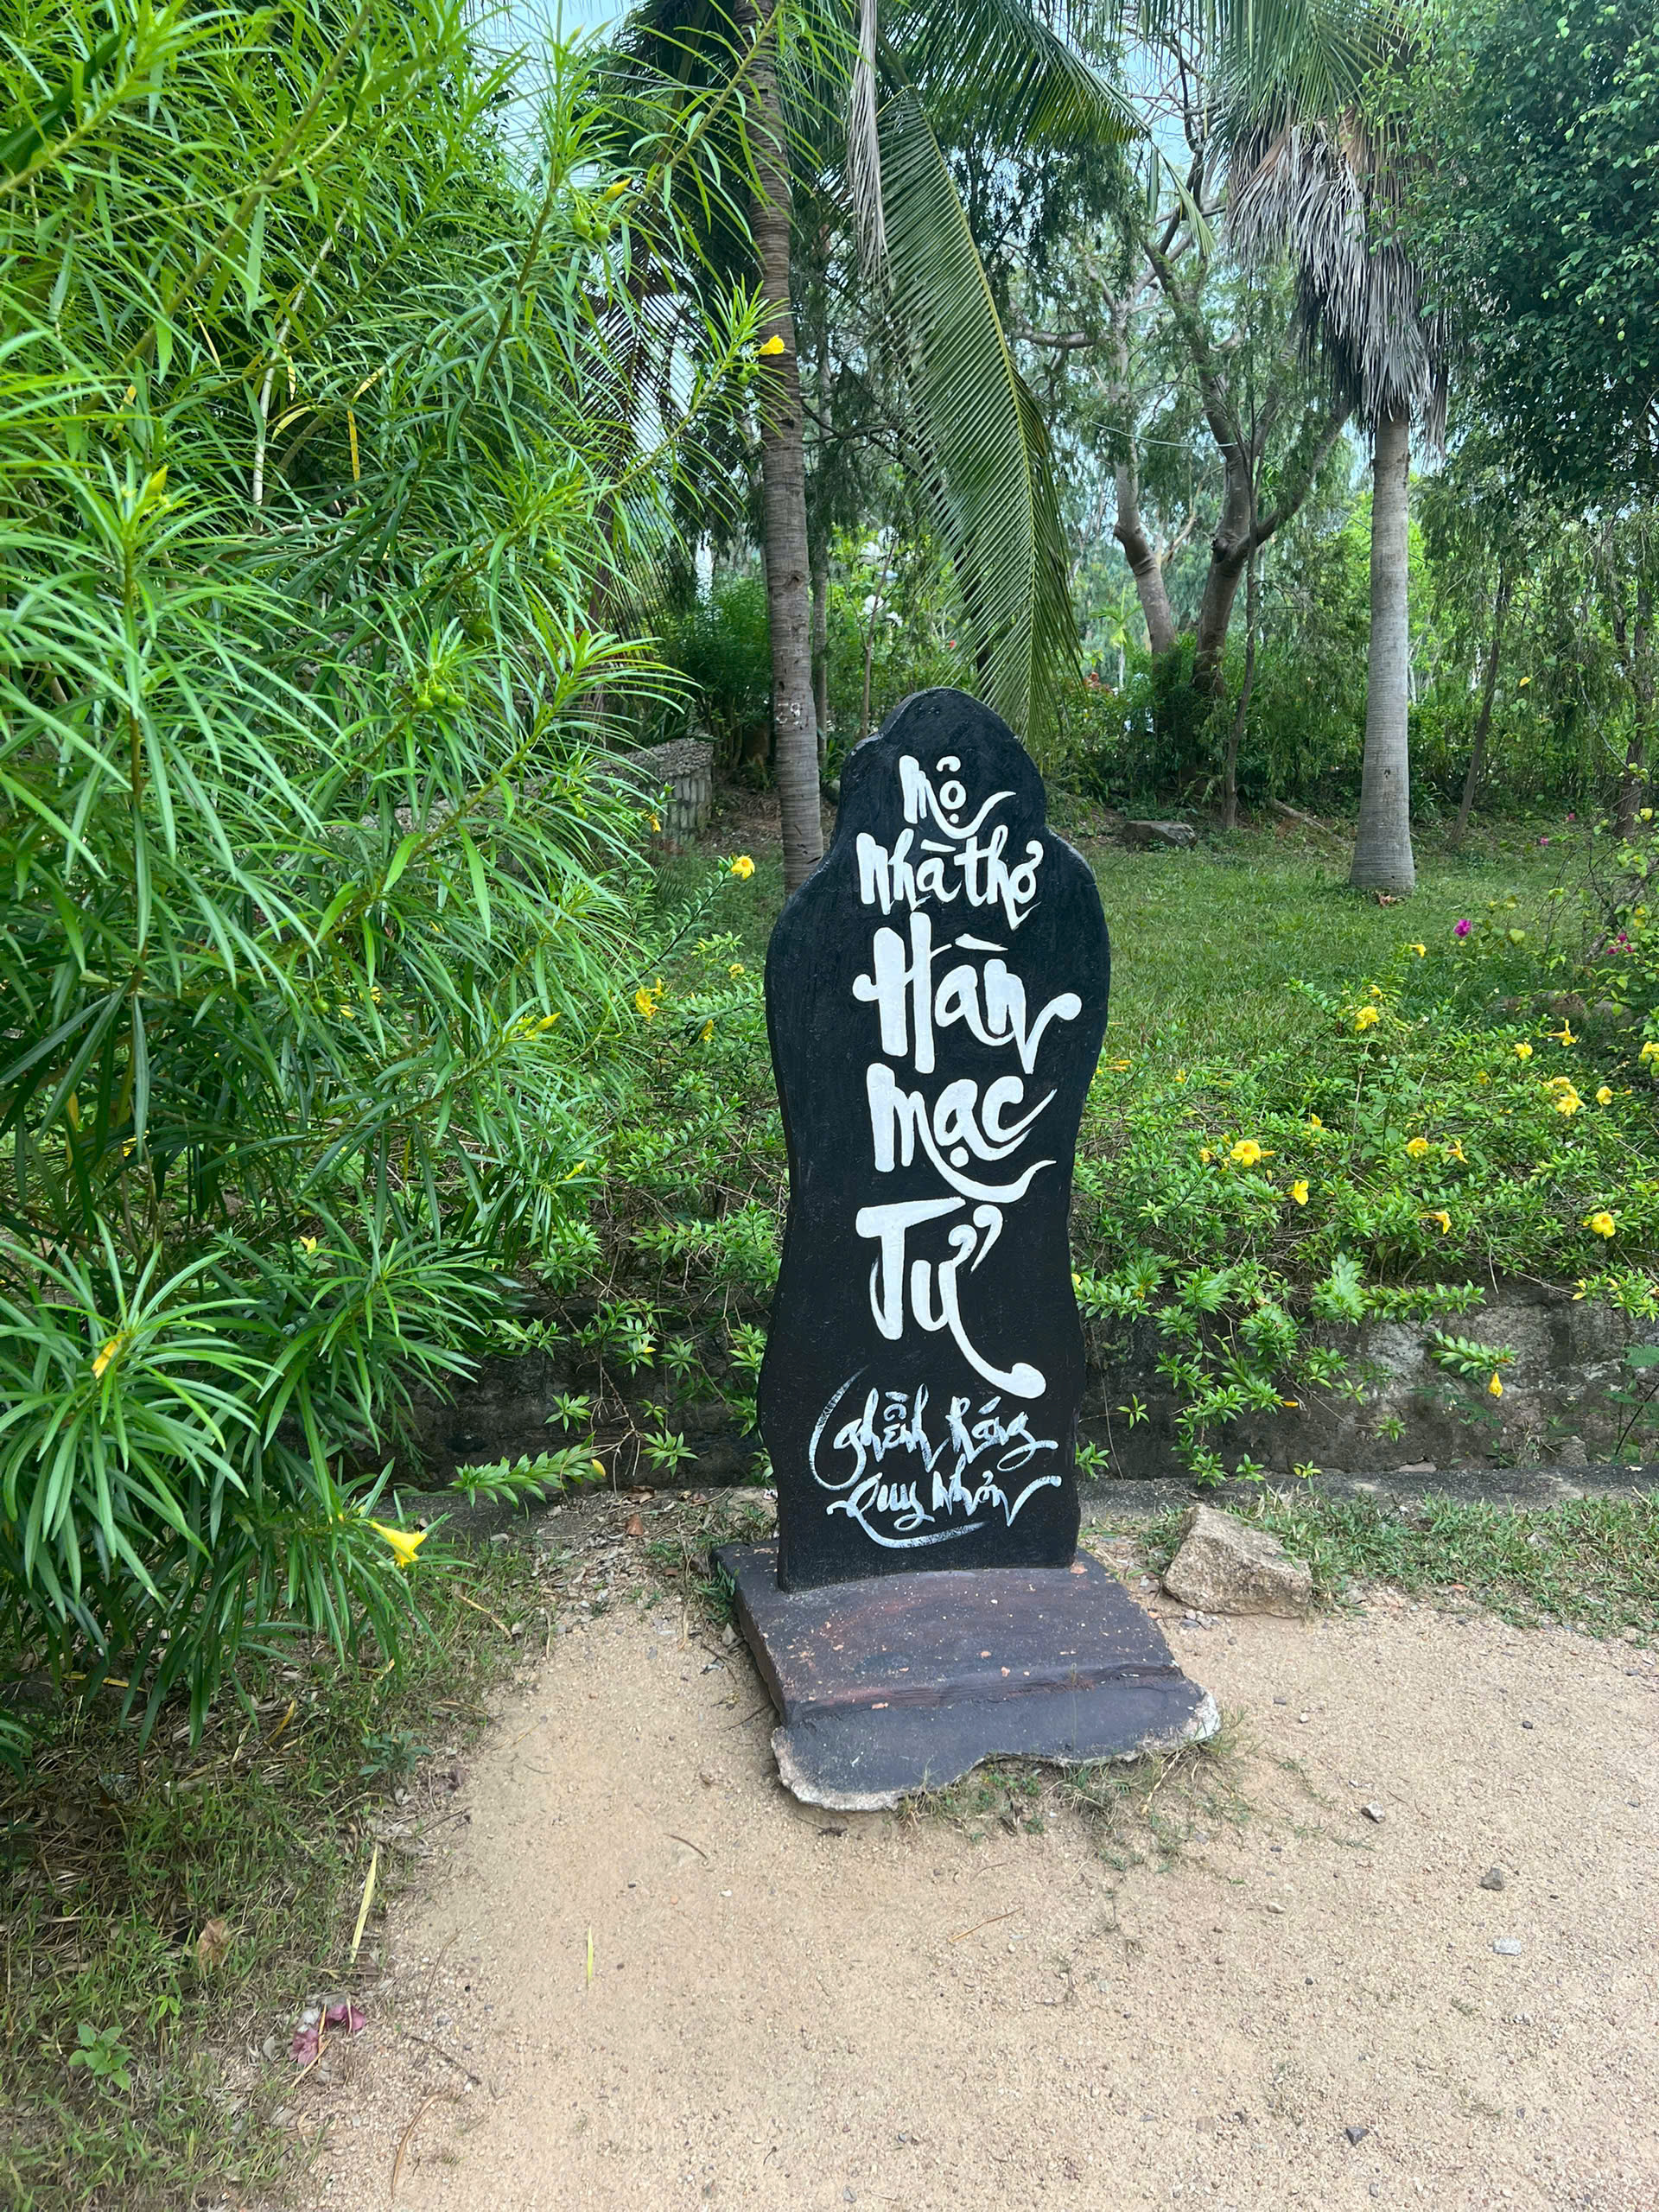 Mộ
Nhà thơ
Hàn
Mạc
Tử
Ghềnh Ráng
Quy Nhơn